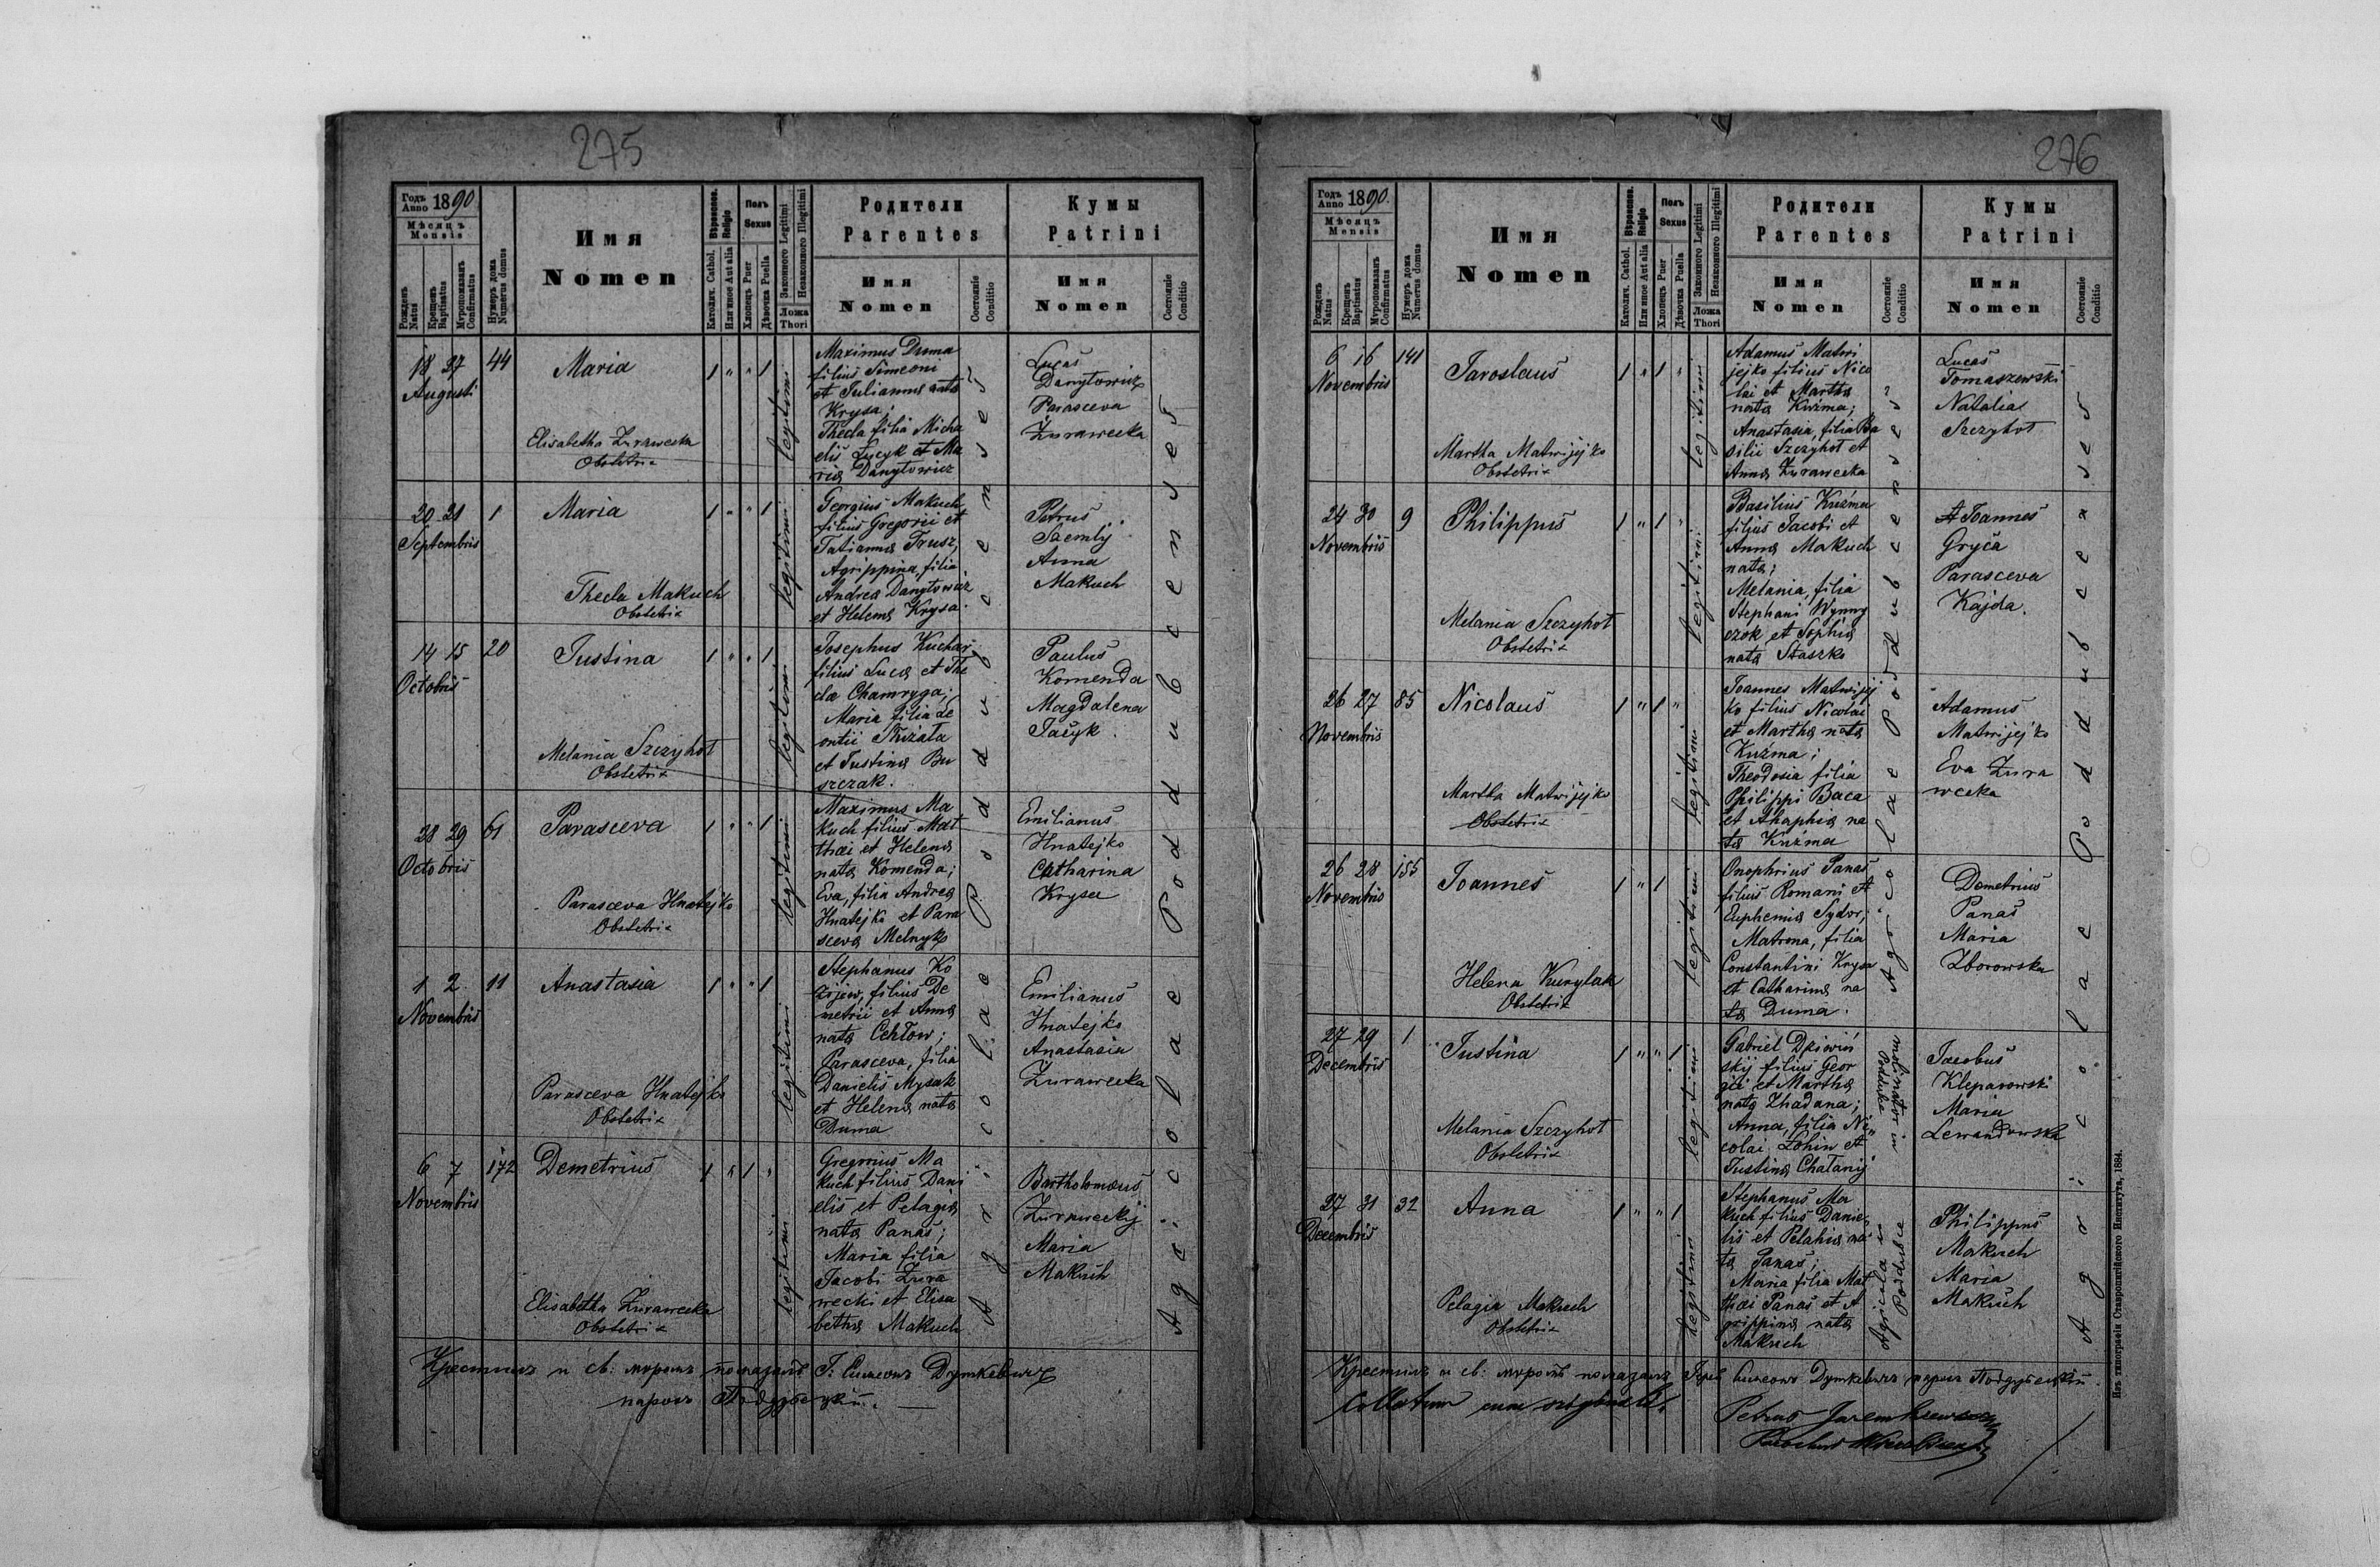 275
Годъ Anno 1890
Мѣсяцъ Mensis
Рожденъ Natus
Крещенъ Baptisatus
Мѵропомазанъ Confirmatus
Нумеръ дома Numerus domus
Имя Nomen
Вѣроисповѣд. Religio
Католич. Cathol.
Или иное Aut alia
Полъ Sexus
Хлопецъ Puer
Дѣвочка Puella
Законного Legitimi
Незаконного Illegitimi
Ложа Thori
Родители Parentes
Имя Nomen
Состояніе Conditio
Кумы Patrini
Имя Nomen
Состояніе Conditio
18 27 44
Augusti
Maria
1 " " 1
legitimi
Elisabetha Żurawecka
Obstetrix
Maximus Duma
filius Simeoni
et Julianna nata
Krysa;
Thecla filia Micha
elis Łucyk et Ma
ria Danyłowicz
Lucas
Danyłowicz
Parasceva
Żurawecka
20 21 1
Septembris
Maria
1 " " 1
legitimi
Thecla Makuch
Obstetrix
Georgius Makuch
filius Gregorii et
Tatianna Trusz,
Agrippina, filia
Andrea Danyłowicz
et Helena Krysa.
Petrus
Szemly
Anna
Makuch
14 15 20
Octobris
Justina
1 " " 1
legitimi
Melania Szczyhot
Obstetrix
Josephus Kuchar
filius Luca et The
cla Chamryga;
Maria filia Le
ontii
et Justina Bu
szczak.
Paulus
Komenda
Magdalena
Jacyk.
28 29 61
Octobris
Parasceva
1 " " 1
legitimi
Parasceva Hnatejko
Obstetrix
Maximus Ma
kuch filius Mat
thæi et Helena
nata Komenda;
Eva, filia Andrea
Hnatejko et Para
sceva Melnyk
Emilianus
Hnatejko
Catharina
Krysa
1 2 11
Novembris
Anastasia
1 " " 1
legitimi
Parasceva Hnatejko
Obstetrix
Stephanus Ko
zijew, filius De
metrii et Anna
nata Cehłow;
Parasceva, filia
Danielis Mysak
et Helena nata
Duma
Emilianus
Hnatejko
Anastasia
Żurawecka
6 7 172
Novembris
Demetrius
1 " 1 "
legitimi
Elisabetha Żurawecka
Obstetrix
Gregorius Ma
kuch filius Dani
elis et Pelagia
nata Panas;
Maria filia
Jacobi Żura
wecki et Elisa
betha Makuch
Bartholomæus
Żurawecky
Maria
Makuch
Agricolae Poddubcenses
Agricolae Poddubcenses
Крестилъ и св: мѵромъ помазалъ Г: Симеонъ Думкевичъ
парохъ Поддубецкій.
276
Годъ Anno 1890.
Мѣсяцъ Mensis
Рожденъ Natus
Крещенъ Baptisatus
Мѵропомазанъ Confirmatus
Нумеръ дома Numerus domus
Имя Nomen
Вѣроисповѣд. Religio
Католич. Cathol.
Или иное Aut alia
Полъ Sexus
Хлопецъ Puer
Дѣвочка Puella
Законного Legitimi
Незаконного Illegitimi
Ложа Thori
Родители Parentes
Имя Nomen
Состояніе Conditio
Кумы Patrini
Имя Nomen
Состояніе Conditio
6 16 141
Novembris
Jaroslaus
1 " 1 "
legitimi
Martha Matwijejko
Obstetrix
Adamus Matwi
jejko filius Nico
lai et Martha
nata Kuźma;
Anastasia, filia Ba
silii Szczyhot et
Anna Żurawecka
Lucas
Tomaszewski
Natalia
Szczyhot
24 30 9
Novembris
Philippus
1 " 1 "
legitimi
Melania Szczyhot
Obstetrix
Basilius Kuźma
filius Jacobi et
Anna Makuch
nata;
Melania, filia
Stephani Wynny
czok et Sophia
nata Staszko
Joannes
Gryca
Parasceva
Kajda.
26 27 85
Novembris
Nicolaus
1 " 1 "
legitimi
Martha Matwijejko
Obstetrix
Joannes Matwijej
ko filius Nicolai
et Martha nata
Kuźma;
Theodosia filia
Philippi Baca
et Ahaphia na
ta Kuźma
Adamus
Matwijejko
Eva Żura
wecka
26 28 155
Novembris
Joannes
1 " 1
legitimi
Helena Kurylak
Obstetrix
Onophrius Panas
filius Romani et
Euphemia Sydor;
Matrona, filia
Constantini Krysa
et Catharina na
ta Duma.
Demetrius
Panas
Maria
Zborowska
27 29 1
Decembris
Justina
1 " " 1
legitimi
Melania Szczyhot
Obstetrix
Gabriel Dziwiń
skij filius Geor
gii et Martha
nata Zhadana;
Anna, filia Ni
colai Łohin et
Justina Chałanij
molinator in
Poddubce
Jacobus
Kleparowski
Maria
Lewandowska
27 31 32
Decembris
Anna
1 " " 1
legitimi
Pelagia Makuch
Obstetrix
Stephanus Ma
kuch filius Danie
lis et Pelahia na
ta Panas;
Maria filia Mat
thæi Panas et A
grippina nata
Makuch
Agricola in
Poddubce
Philippus
Makuch
Maria
Makuch
Agricolae Poddubcenses
Agricolae Poddubcenses
Крестилъ и св: мѵромъ помазалъ Іерей Симеонъ Думкевичъ парохъ Поддубецкій
Collatum cum originali.
Petrus
Parochus
Изъ типографіи Ставропигійского Института, 1884.